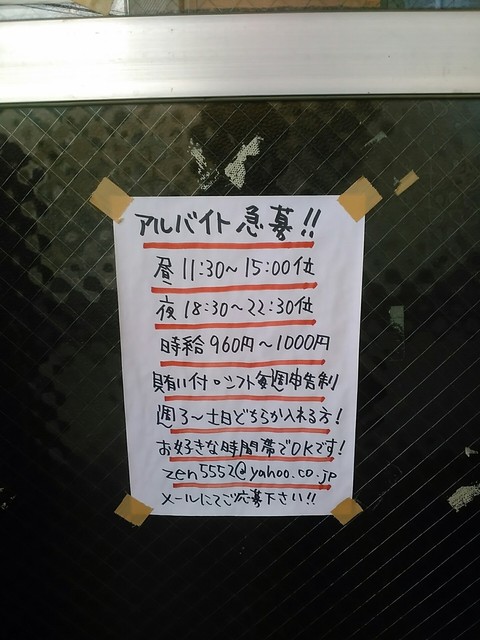 アルバイト急募!!
昼 11:30〜15:00位
夜 18:30〜22:30位
時給 960円〜1000円
賄い付。シフト毎週申告制
週3〜土日どちらか入れる方!
お好きな時間帯でOKです!
zen5552@yahoo.co.jp
メールにてご応募下さい!!